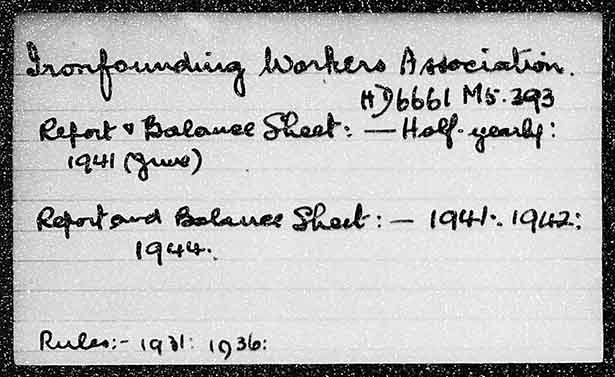 Ironfounding Workers Association.
HD6661 M5.393
Report & Balance Sheet: — Half-yearly:
1941 (June)
Report and Balance Sheet: — 1941. 1942:
1944.
Rules:- 1931: 1936: